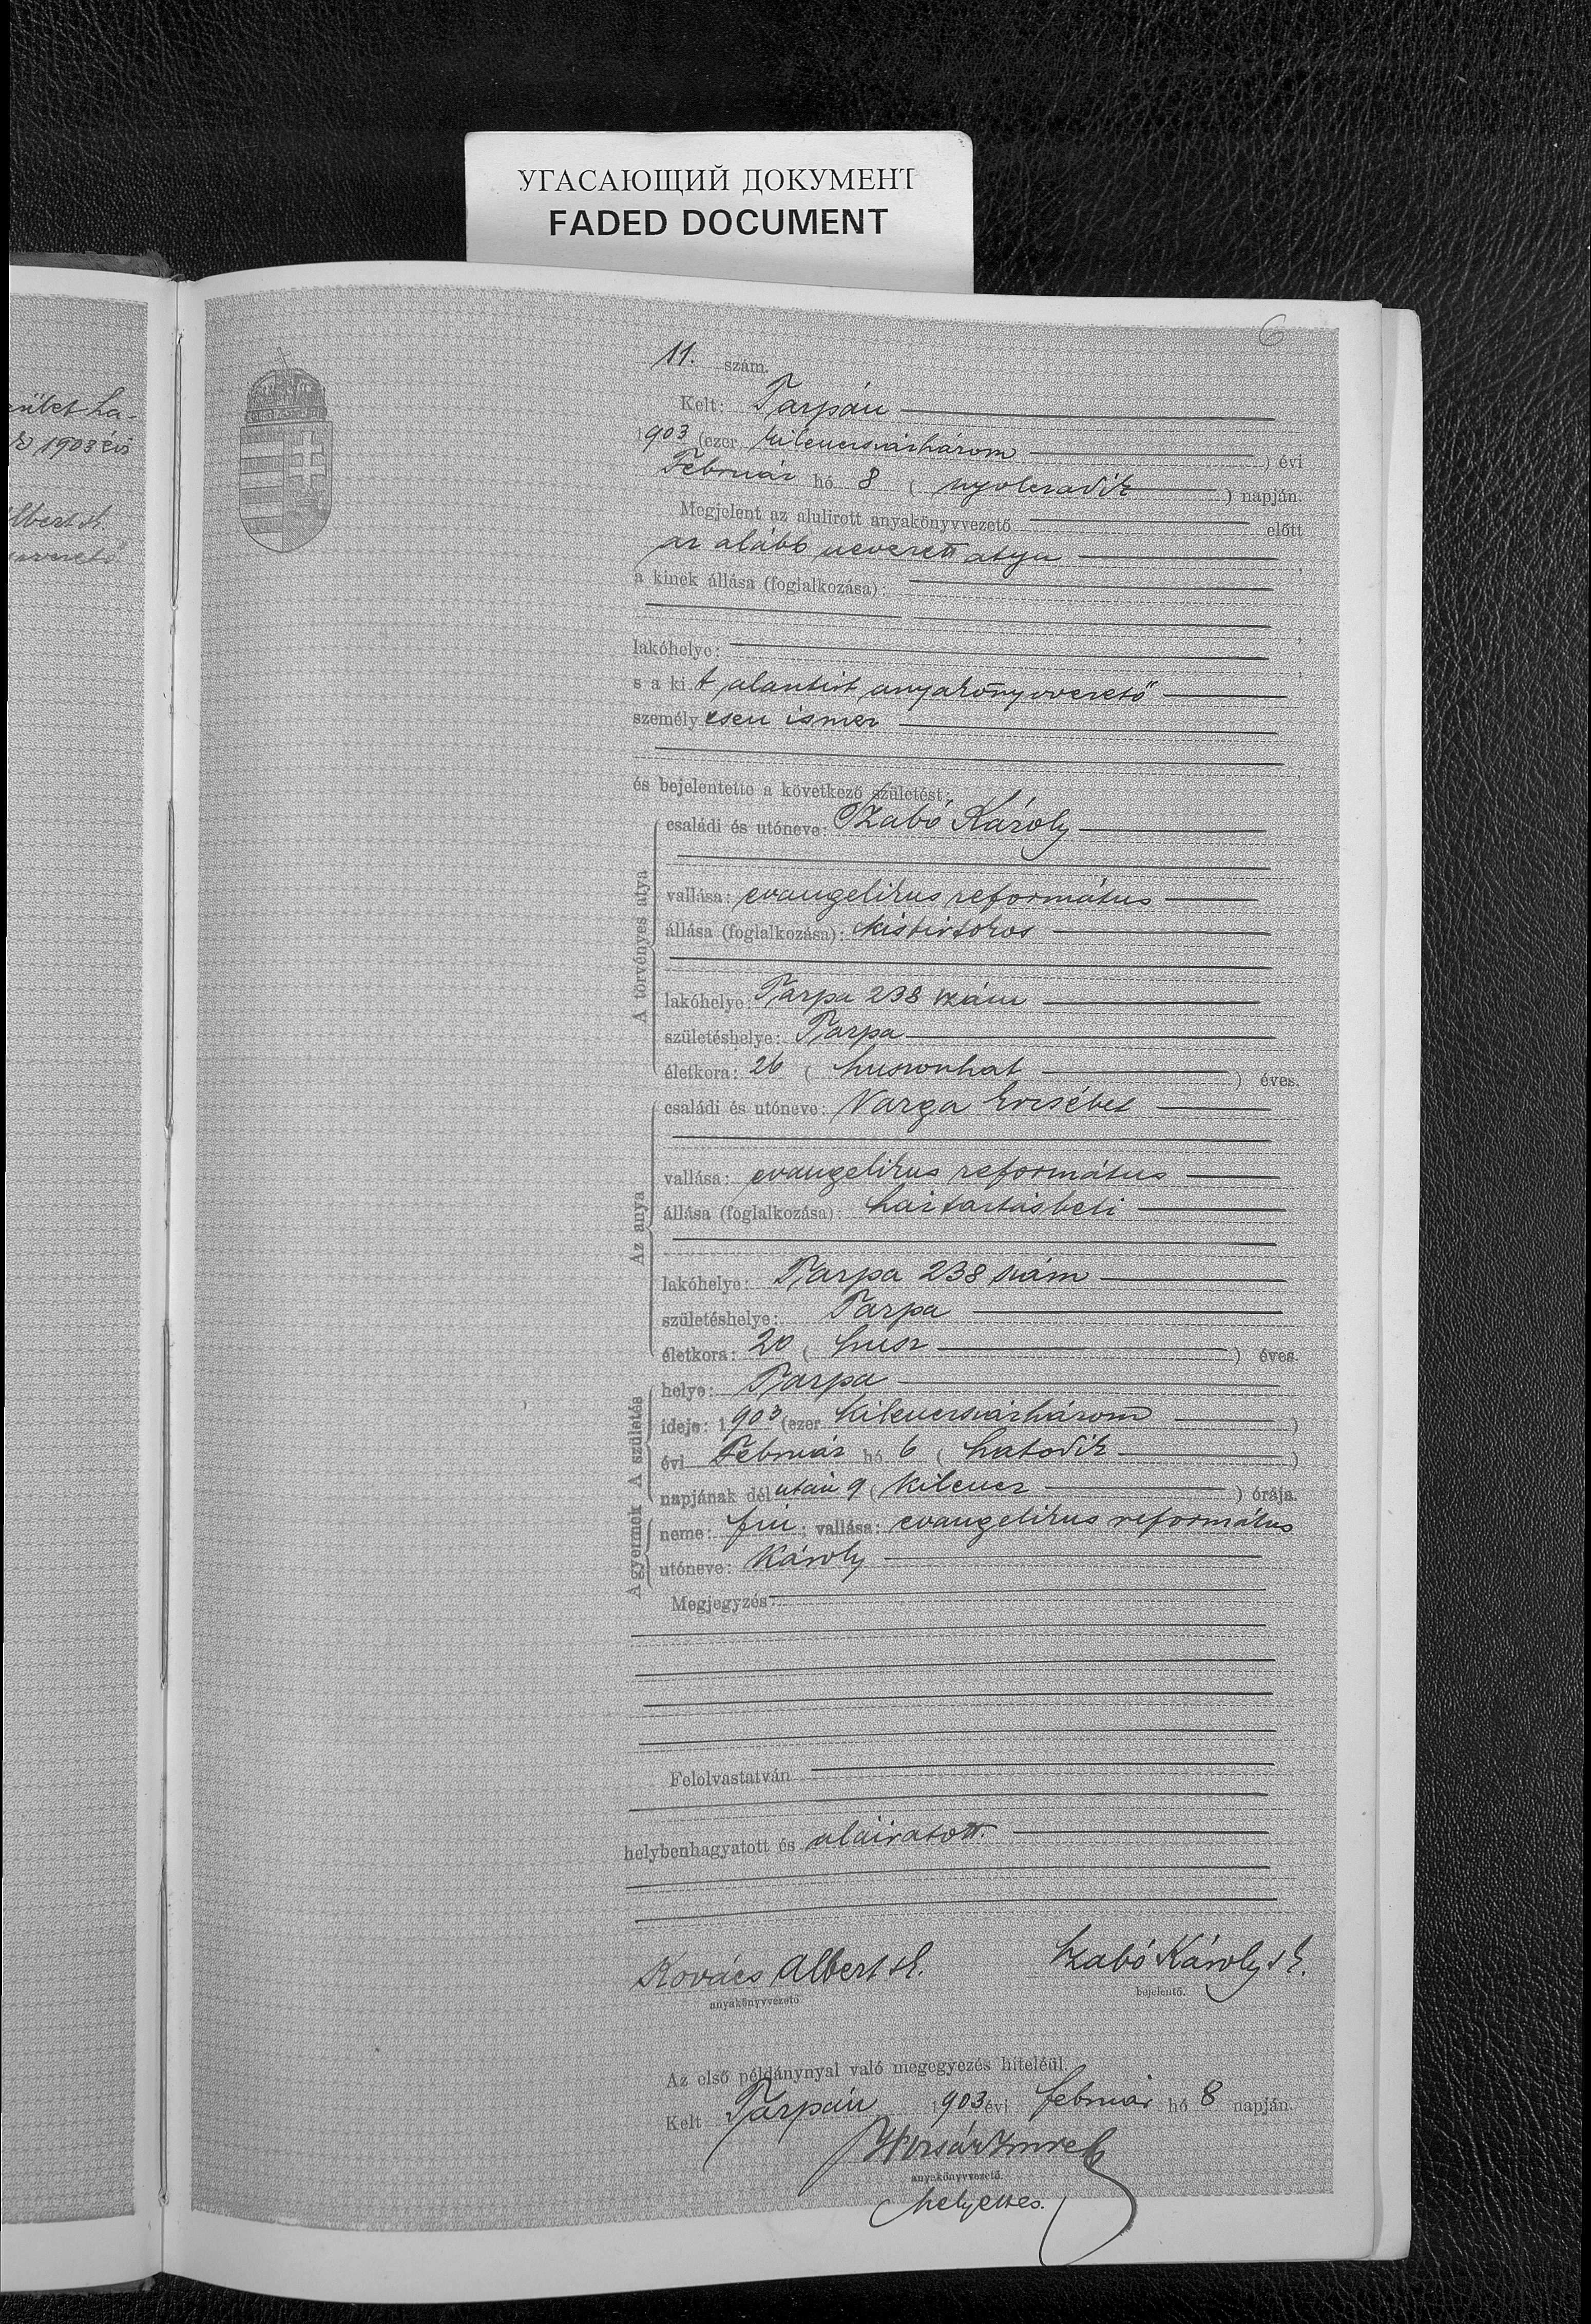 УГАСАЮЩИЙ ДОКУМЕНТ
FADED DOCUMENT
6
ület ha-
1903 évi
lbert sk.
vezető
11. szám.
Kelt: Tarpán
1903 (ezer kilencszázhárom) évi
Február hó 8 (nyolczadik) napján.
Megjelent az alulirott anyakönyvvezető előtt
az alább nevezett atya,
a kinek állása (foglalkozása):
lakóhelye:
s a kit alantirt anyakönyvvezető
személyesen ismer
és bejelentette a következő születést:
A törvényes atya
családi és utóneve: Szabó Károly
vallása: evangelikus református
állása (foglalkozása): kisbirtokos
lakóhelye: Tarpa 238 szám
születéshelye: Tarpa
életkora: 26 (huszonhat) éves.
Az anya
családi és utóneve: Varga Erzsébet
vallása: evangelikus református
állása (foglalkozása): háztartásbeli
lakóhelye: Tarpa 238 szám
születéshelye: Tarpa
életkora: 20 (husz) éves.
A születés
helye: Tarpa
ideje: 1903 (ezer kilencszázhárom)
évi Február hó 6 (hatodik)
napjának délután 9 (kilencz) órája.
A gyermek
neme: fiú; vallása: evangelikus református
utóneve: Károly
Megjegyzés:
Felolvastatván
helybenhagyatott és aláiratott.
Kovács Albert sk. Szabó Károly sk.
anyakönyvvezető bejelentő.
Az első példánynyal való megegyezés hiteléül.
Kelt Tarpán 1903 évi február hó 8 napján.
Imre
anyakönyvvezető
helyettes.